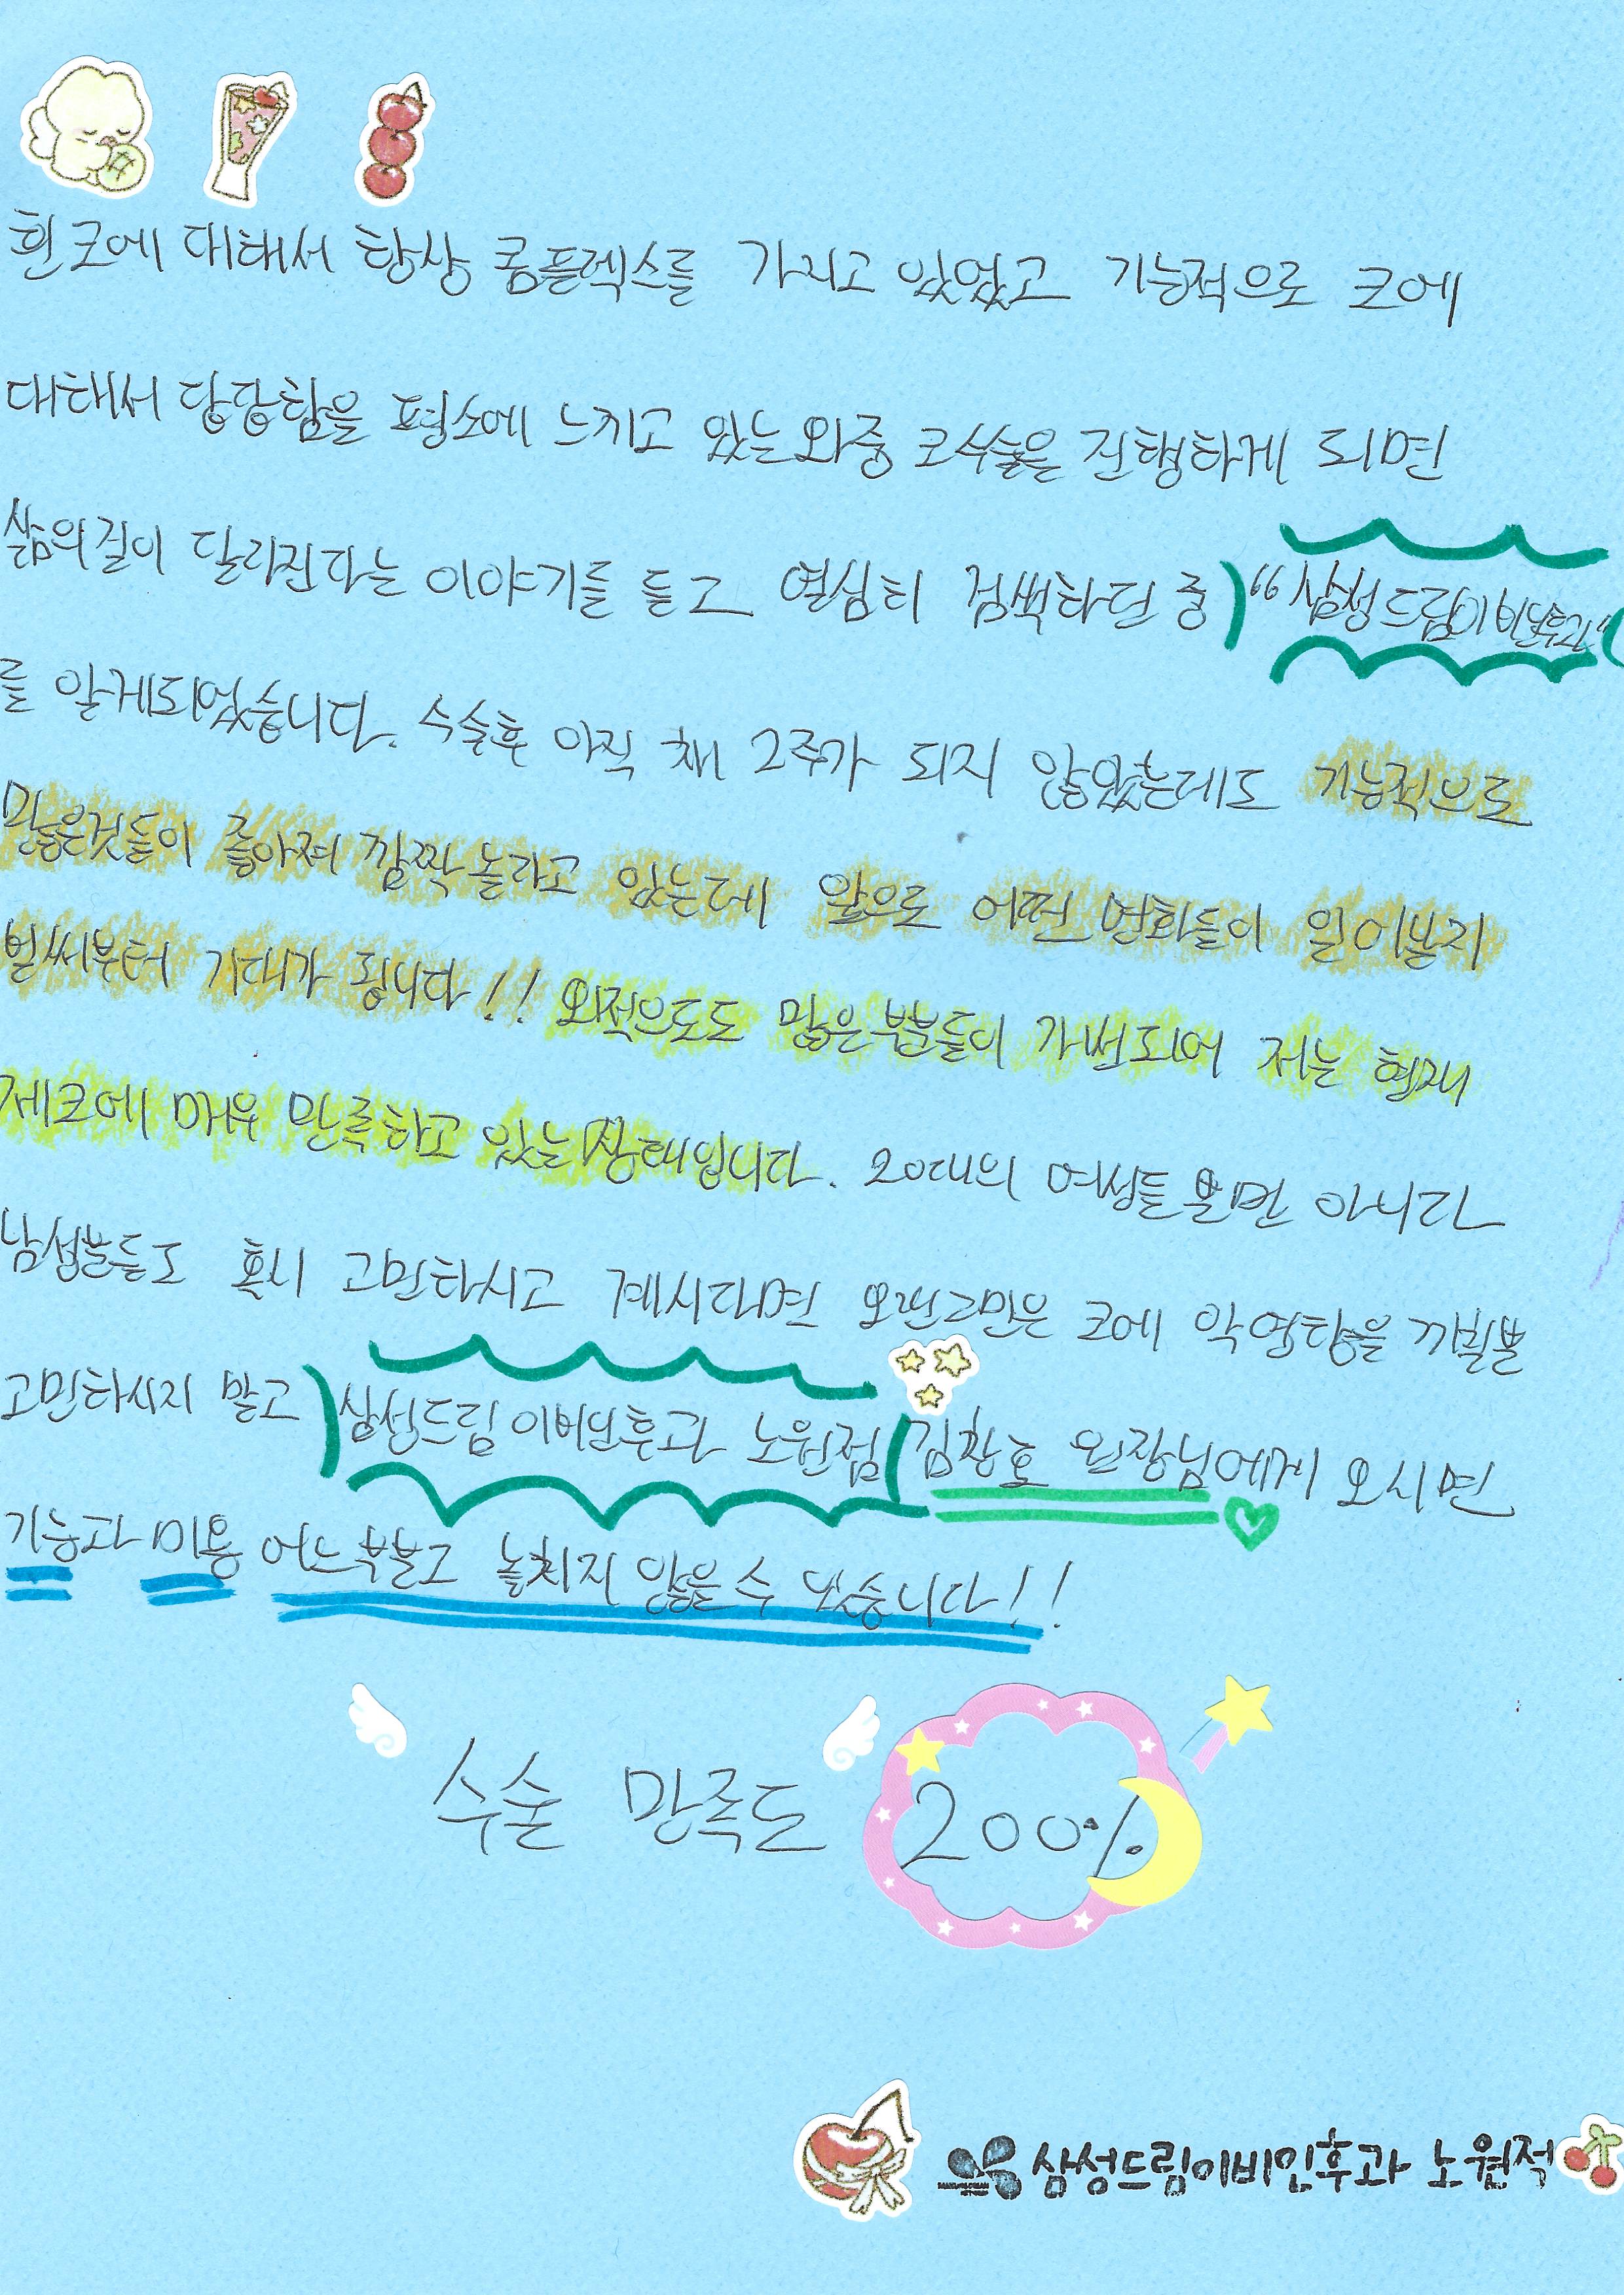 휜코에 대해서 항상 콤플렉스를 가지고 있었고 기능적으로 코에
대해서 답답함을 평소에 느끼고 있는와중 코수술을 진행하게 되면
삶의질이 달라진다는 이야기를 듣고 열심히 검색하던 중 "삼성드림이비인후과"
를 알게되었습니다. 수술후 아직 채 2주가 되지 않았는데도 기능적으로
많은것들이 좋아져 깜짝 놀라고 있는데 앞으로 어떤 변화들이 일어날지
벌써부터 기대가 됩니다!! 외적으로도 많은부분들이 개선되어 저는 현재
제코에 매우 만족하고 있는상태입니다. 20대의 여성들 뿐만 아니라
남성분들도 혹시 고민하시고 계시다면 오랜고민은 코에 악영향을 끼칠뿐
고민하시지 말고 삼성드림이비인후과 노원점 김창호 원장님에게 오시면
기능과 미용 어느부분도 놓치지 않을수 있습니다!!
수술 만족도 200%
삼성드림이비인후과 노원점